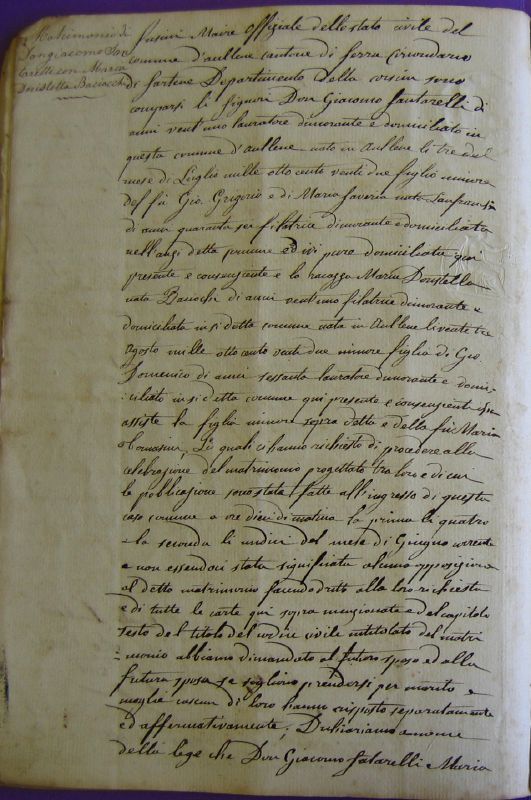 Matrimonio di
Dongiacomo Fan
tarelli con Maria
Doristella Baciocchi
Maire Offiziale dello stato civile del
comune d'aullene cantone di Serra Circondario
di Sartene Departimento della Corsica sono
comparsi li signori Don Giacomo fantarelli di
anni vent uno lavratore dimorante e domiciliato in
questa comune d'Aullene nato in Aullene li tre del
mese di Luglio mille otto cento venti due figlio minore
del fù Gio. Grigorio e di Maria Saveria nata
di anni quaranta sei filatrice dimorante e domiciliata
nell'anzi detta comune ed ivi pure domiciliata qui
presente e consenziente e la ragazza Maria Doristella
nata Baciochi di anni vent uno filatrice dimorante e
domiciliata in si detta comune nata in Aullene li vente tre
Agosto mille otto cento venti due minore figlia di Gio
Domenico di anni sessanta lavratore dimorante e domi-
ciliato in si detta comune qui presente e consenziente
assiste la figlia minore sopra detta e della fù Maria
Tomasina, Li quali ci hanno richiesto di procedere alla
celebrazione del matrimonio progettato tra loro e di cui
le publicazione sono state fatte all'ingresso di questa
casa comune a ore dieci di matina la prima li quatro
e la seconda li undici del mese di Giugno corrente
e non essendoci stata significata alcuna opposizione
al detto matrimonio facendo dritto alla loro richiesta
e di tutte le carte qui sopra menzionate e del capitolo
sesto del titolo del codice civile intitolato del matri
-monio abbiamo dimandato al futuro sposo ed alla
futura sposa se vogliono prendersi per marito e
moglie cascun di loro hanno risposto separatamente
ed affermativamente; Dichiariamo a nome
della lege che Don Giacomo fatarelli e Maria